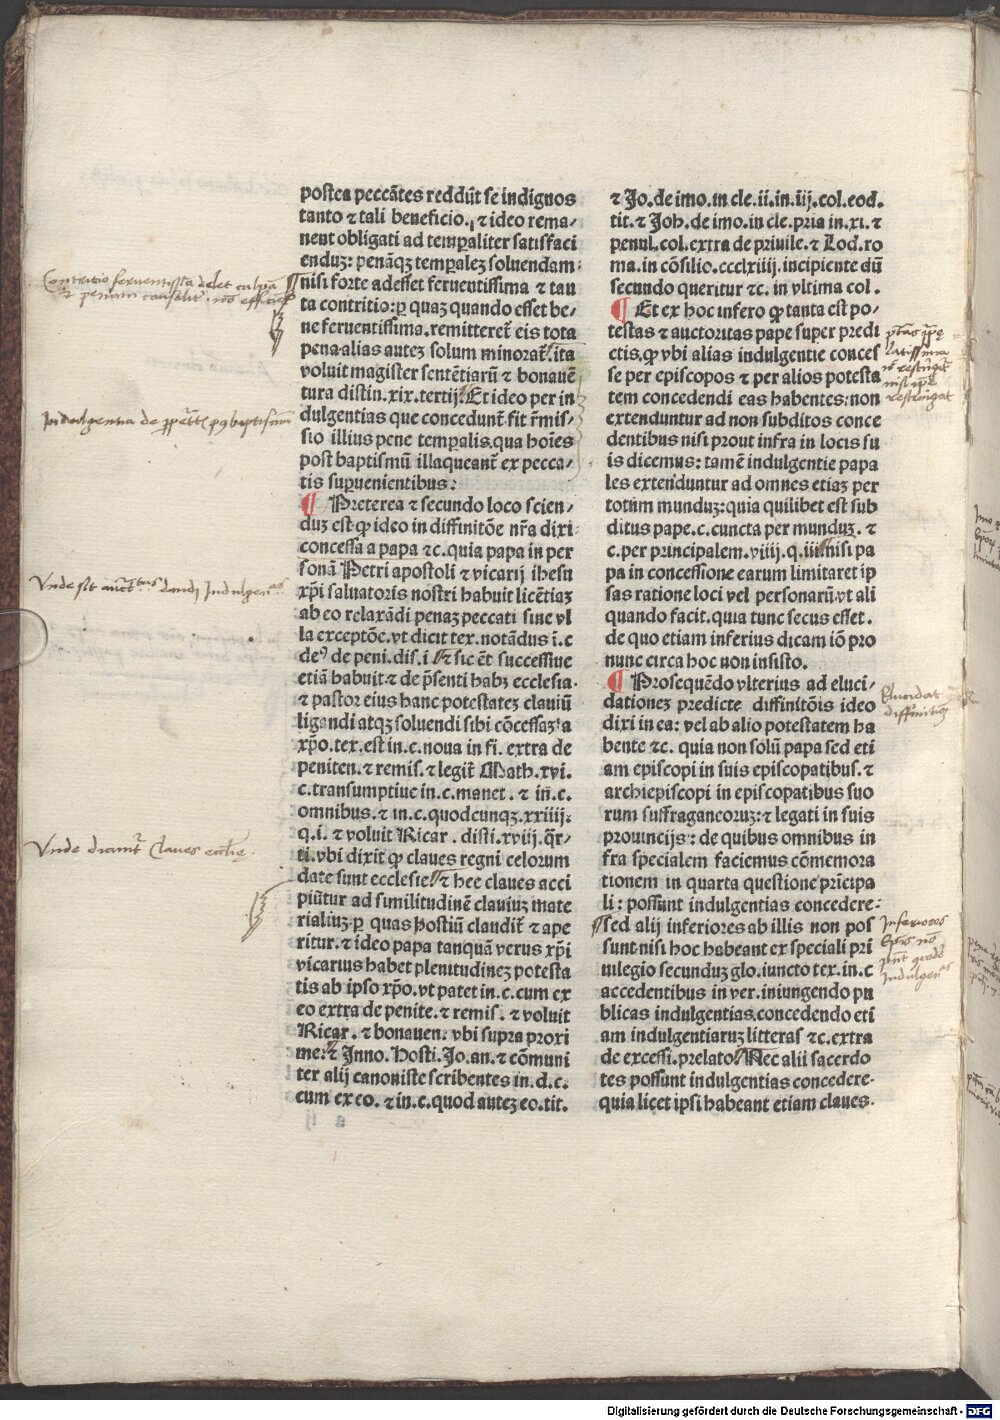 postea peccātes reddūt se indignos
tanto ⁊ tali beneficio. ⁊ ideo rema/
nent obligati ad temꝑaliter satisfaci
enduꝫ: penāqꝫ temꝑaleꝫ soluendam:
nisi forte adesset feruentissima ⁊ tan
ta contritio: ꝑ quaꝫ quando esset be/
ne feruentissima. remitteret̄ eis tota
pena. alias auteꝫ solum minorat̄. ita
voluit magister sentētiarū ⁊ bonauē
tura distin. xix. tertij. Et ideo per in
dulgentias que concedunt̄ fit r̄mis/
sio illius pene temꝑalis, qua hoīes
post baptismū illaqueant̄ ex pecca/
tis suꝑuenientibus:
¶ Preterea ⁊ secundo loco scien/
duꝫ est ꝙ ideo in diffinitōe nr̄a dixi:
concessa a papa ⁊c. quia papa in per
sonā Petri apostoli ⁊ vicarij ihesu
xp̄i saluatoris nostri habuit licētiaꝫ
ab eo relaxādi penaꝫ peccati sine vl
la exceptōe. vt dicit tex. notādus ī. c
deꝰ de peni. dis. i. ⁊ sic ēt successiue
etiā habuit ⁊ de p̄senti habꝫ ecclesia.
⁊ pastor eius hanc potestateꝫ clauiū
ligandi atqꝫ soluendi sibi cōcessaꝫ a
xp̄o. tex. est in. c. noua in fi. extra de
peniten. ⁊ remis. ⁊ legit̄ Math. xvi.
c. transumptiue in. c. manet. ⁊ in̄. c.
omnibus. ⁊ in. c. quodcunqꝫ. xxiiij.
q. i. ⁊ voluit Ricar. disti. xviij. q̄r/
ti. vbi dixit ꝙ claues regni celorum
date sunt ecclesie. ⁊ hee claues acci
piūtur ad similitudinē clauiuꝫ mate
rialiuꝫ. ꝑ quas hostiū claudit̄ ⁊ ape
ritur. ⁊ ideo papa tanquā verus xp̄i
vicarius habet plenitudineꝫ potesta
tis ab ipso xp̄o. vt patet in. c. cum ex
eo extra de penite. ⁊ remis. ⁊ voluit
Ricar. ⁊ bonauen. vbi supra proxi
me. ⁊ Inno. Hosti. Jo. an. ⁊ cōmuni
ter alij canoniste scribentes in. d. c.
cum ex eo. ⁊ in. c. quod auteꝫ eo. tit.
⁊ Jo. de imo. in cle. ii. in. iij. col. eod.
tit. ⁊ Joh. de imo. in cle. pria in. xi. ⁊
penul. col. extra de priuile. ⁊ Lod. ro
ma. in cōsilio. ccclxiiij. incipiente dū
secundo queritur ⁊c. in vltima col.
¶ Et ex hoc infero ꝙ tanta est po/
testas ⁊ auctoritas pape super predi
ctis, ꝙ vbi alias indulgentie conces
se per episcopos ⁊ per alios potesta
tem concedendi eas habentes: non
extenduntur ad non subditos conce
dentibus nisi prout infra in locis su
is dicemus: tamē indulgentie papa
les extenduntur ad omnes etiaꝫ per
totum munduꝫ: quia quilibet est sub
ditus pape. c. cuncta per munduꝫ. ⁊
c. per principalem. viiij. q. iii. nisi pa
pa in concessione earum limitaret ip
sas ratione loci vel personarū. vt ali
quando facit. quia tunc secus esset.
de quo etiam inferius dicam iō pro
nunc circa hoc non insisto.
¶ Prosequēdo vlterius ad eluci/
dationeꝫ predicte diffinitōis ideo
dixi in ea: vel ab alio potestatem ha
bente ⁊c. quia non solū papa sed eti
am episcopi in suis episcopatibus. ⁊
archiepiscopi in episcopatibus suo
rum suffraganeoruꝫ: ⁊ legati in suis
prouincijs: de quibus omnibus in
fra specialem faciemus cōmemora
tionem in quarta questione prīcipa
li: possunt indulgentias concedere:
sed alij inferiores ab illis non pos
sunt nisi hoc habeant ex speciali pri
uilegio secunduꝫ glo. iuncto tex. in. c
accedentibus in ver. iniungendo pu
blicas indulgentias, concedendo eti
am indulgentiaruꝫ litteras ⁊c. extra
de excessi. prelato. Nec alii sacerdo
tes possunt indulgentias concedere.
quia licet ipsi habeant etiam claues.
Contritio feruentissīa delet culpā
⁊ penam
Indulgentia de baptismū
Vnde sit dandj Indulgen
Vnde dicunt̄ Claues eccl̄ie.
latissima
restringat
Elucidat
diffinitōeꝫ
Inferiores
Indulgenᵃˢ
Digitalisierung gefördert durch die Deutsche Forschungsgemeinschaft - DFG